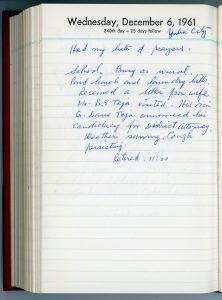 Wednesday, December 6, 1961
340th day — 25 days follow
Yuba City
Had my bath & prayers.
School. Busy as usual.
Paid lunch and laundry bills
Received a letter from wife.
Mr. B.S Teja visited. His son
G. Dave Teja announced his
candidacy for District Attorney
Weather sunny. Cough
persisting.
Retired: 11:00